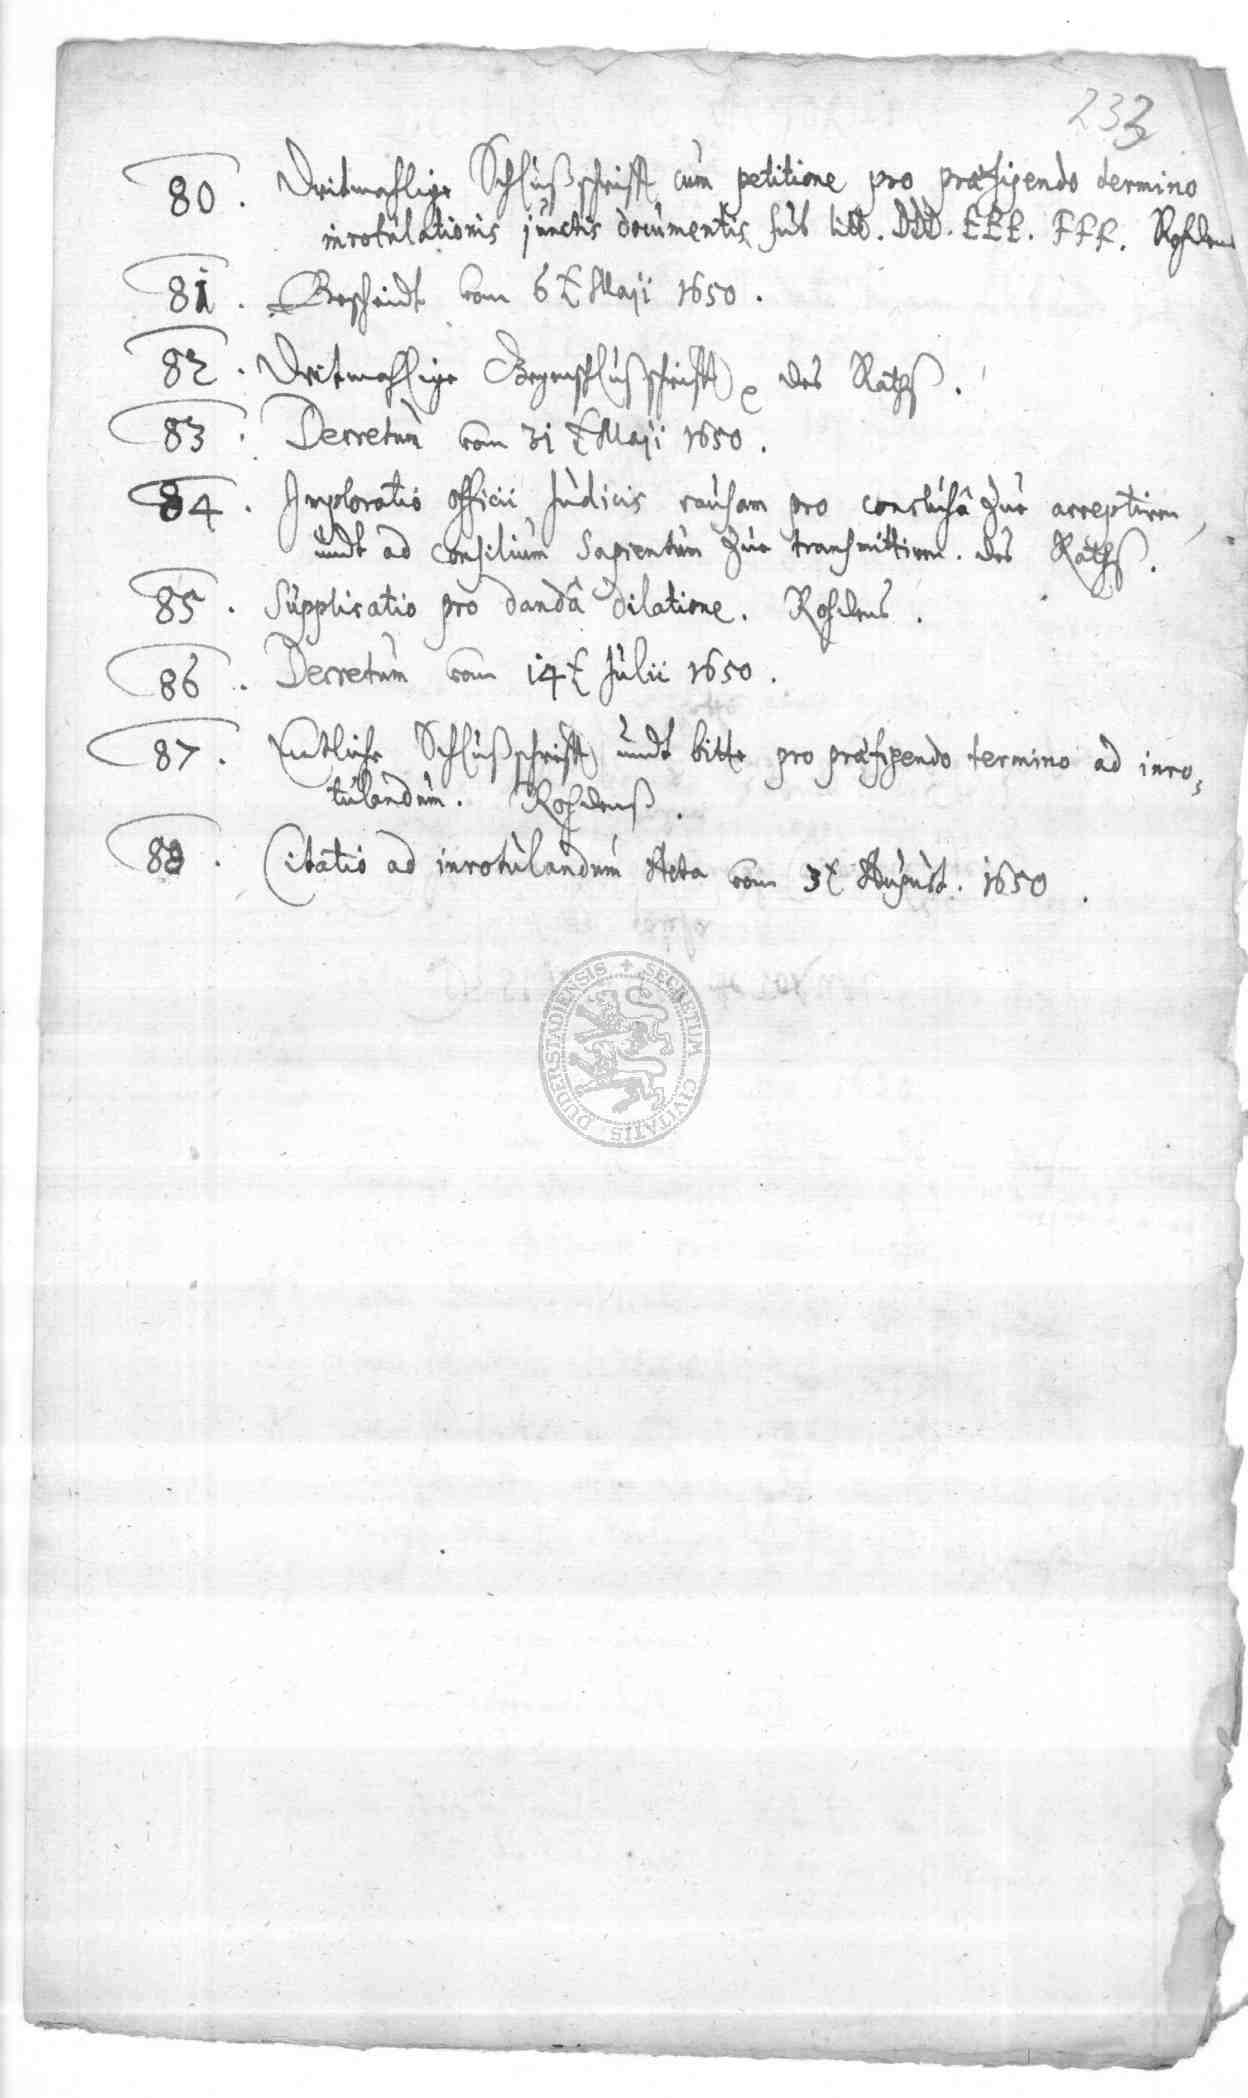 233
80. Dritmahlige Schlußschrifft cum petitione pro præfigendo termino
inrotulationis junctis documentis sub litt. DDD. EEE. FFF. Rohdens
81. Bescheidt vom 6t Maji 1650.
82. Dritmahlige Gegenschlußschrifft des Raths.
83. Decretum vom 31t Maji 1650.
84. Imploratio officii Judicis causam pro conclusâ zur acceptiren,
undt ad consilium Sapientum zur transmittiren. des Raths.
85. Supplicatio pro dandâ dilatione. Rohdens.
86. Decretum vom 14t Julii 1650.
87. Entliche Schlußschrifft undt bitte pro præfigendo termino ad inro-
tulandum. Rohdenß.
88. Citatio ad inrotulandum Acta vom 3t August. 1650.
SECRETUM CIVITATIS DUDERSTADIENSIS